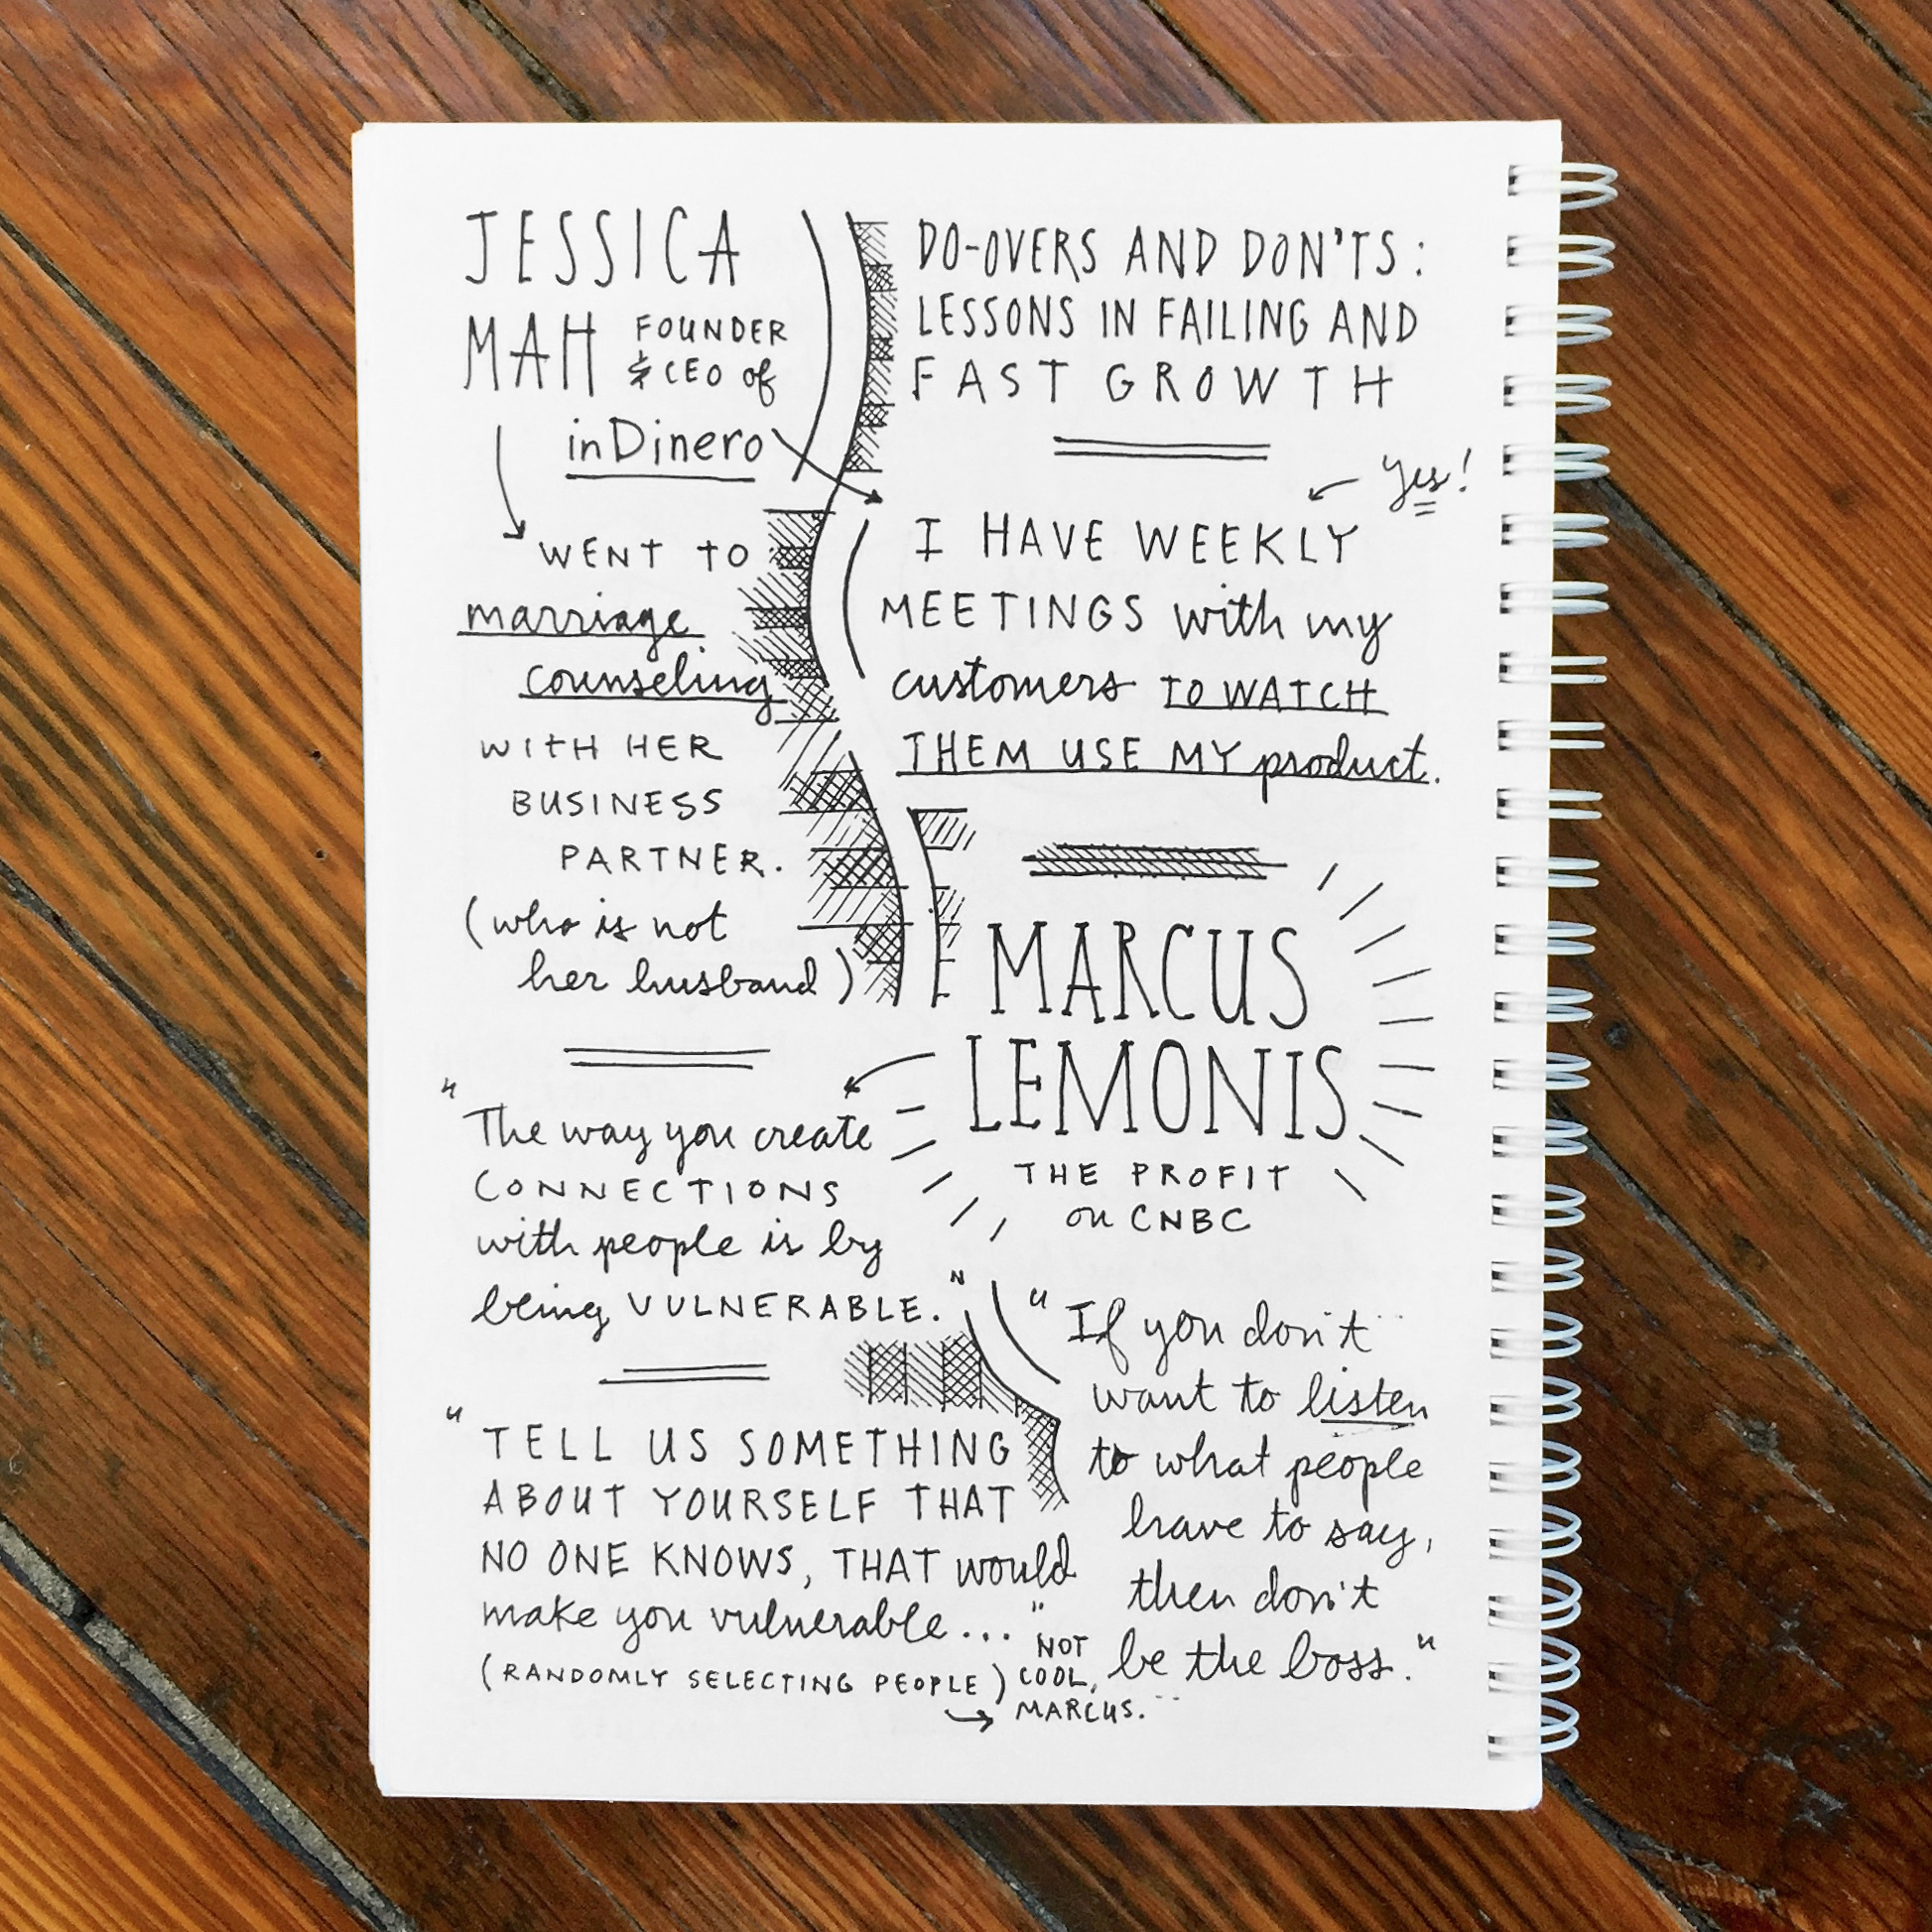 JESSICA
MAH FOUNDER
& CEO of
inDinero
WENT TO
marriage
counseling
WITH HER
BUSINESS
PARTNER.
(who is not
her husband)
DO-OVERS AND DON'TS:
LESSONS IN FAILING AND
FAST GROWTH
Yes!
I HAVE WEEKLY
MEETINGS with my
customers TO WATCH
THEM USE MY product.
MARCUS
LEMONIS
THE PROFIT
on CNBC
"The way you create
CONNECTIONS
with people is by
being VULNERABLE."
"TELL US SOMETHING
ABOUT YOURSELF THAT
NO ONE KNOWS, THAT would
make you vulnerable..."
(RANDOMLY SELECTING PEOPLE)
NOT
COOL,
MARCUS.
"If you don't
want to listen
to what people
have to say,
then don't
be the boss."